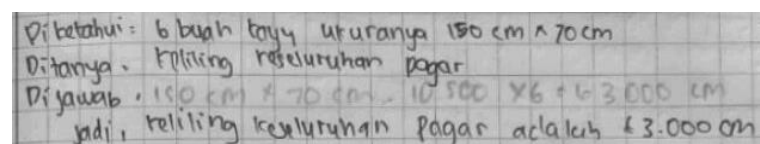 Diketahui = 6 buah kayu ukuranya 150 cm x 70 cm
Ditanya. keliling keseluruhan pagar
Dijawab. 150 cm x 70 cm = 10 500 x 6 = 63 000 cm
jadi, keliling keseluruhan pagar adalah 63.000 cm